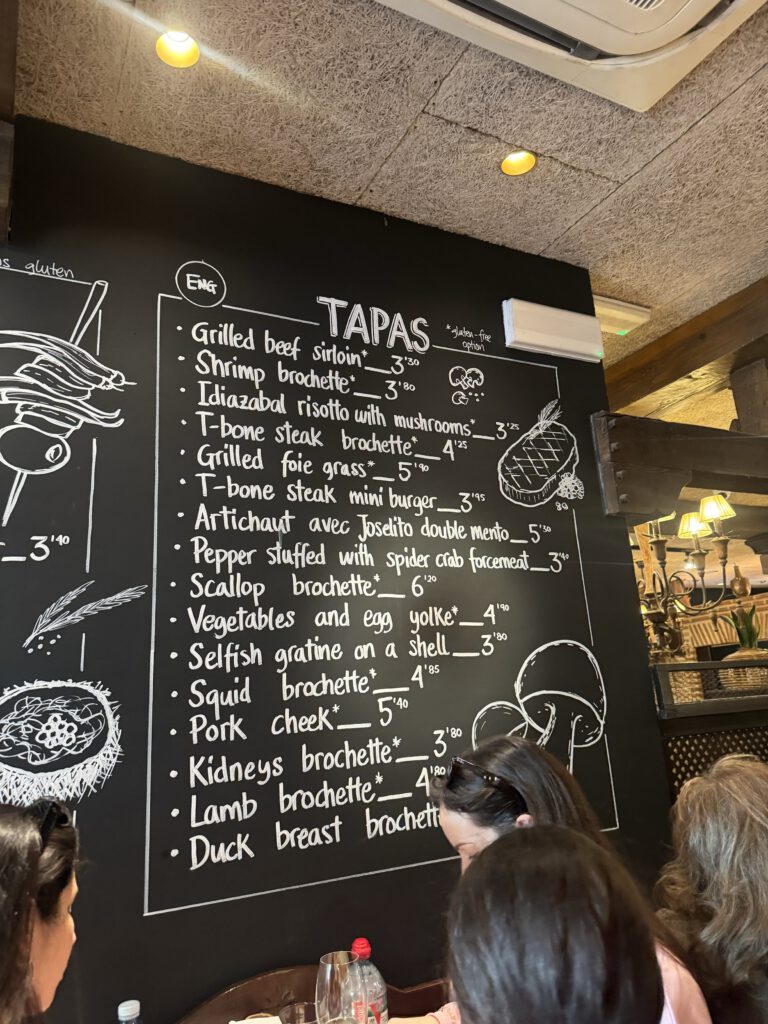 gluten
3'40
ENG
TAPAS
*gluten-free
option
• Grilled beef sirloin*__3'30
• Shrimp brochette*__3'80
• Idiazabal risotto with mushrooms*__3'25
• T-bone steak brochette*__4'25
• Grilled foie grass*__5'90
• T-bone steak mini burger__3'95
• Artichaut avec Joselito double mento__5'30
• Pepper stuffed with spider crab forcemeat__3'40
• Scallop brochette*__6'20
• Vegetables and egg yolke*__4'90
• Selfish gratine on a shell__3'80
• Squid brochette*__4'85
• Pork cheek*__5'40
• Kidneys brochette*__3'80
• Lamb brochette*__4'80
• Duck breast brochett